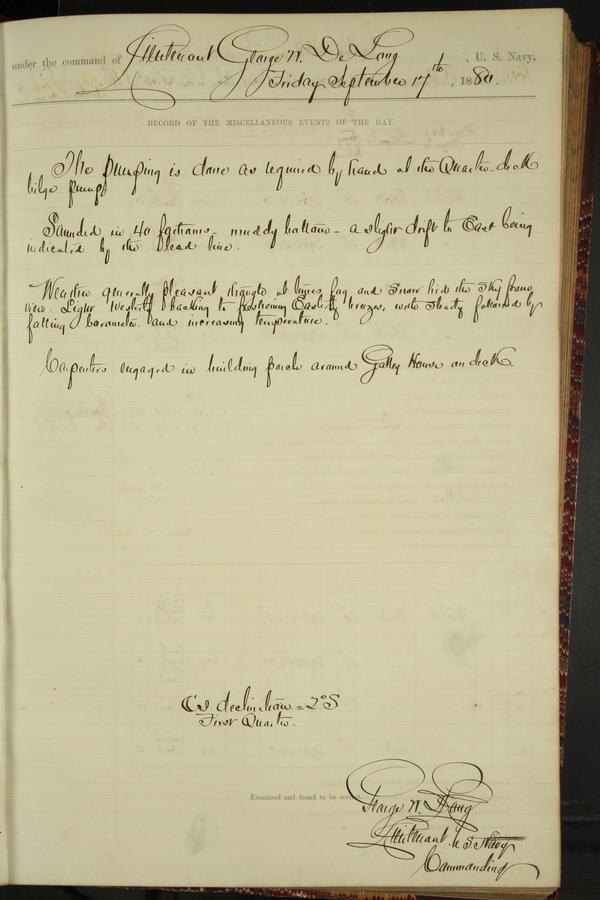 under the command of Lieutenant George W. De Long, U. S. Navy,
Friday September 17th, 1880.
RECORD OF THE MISCELLANEOUS EVENTS OF THE DAY.
The pumping is done as required by hand at the Quarter-deck
bilge pumps
Sounded in 40 fathoms - muddy bottom - a slight drift to East being
indicated by the lead line.
Weather generally pleasant though at times fog and snow hid the sky from
view. Light Westerly backing to freshening Easterly breezes, with steady followed by
falling barometer and increasing temperature.
Carpenters engaged in building porch around Galley House on deck.
☾'s declination = 2° S
First Quarter.
Examined and found to be correct.
George W. De Long
Lieutenant U. S. Navy
Commanding